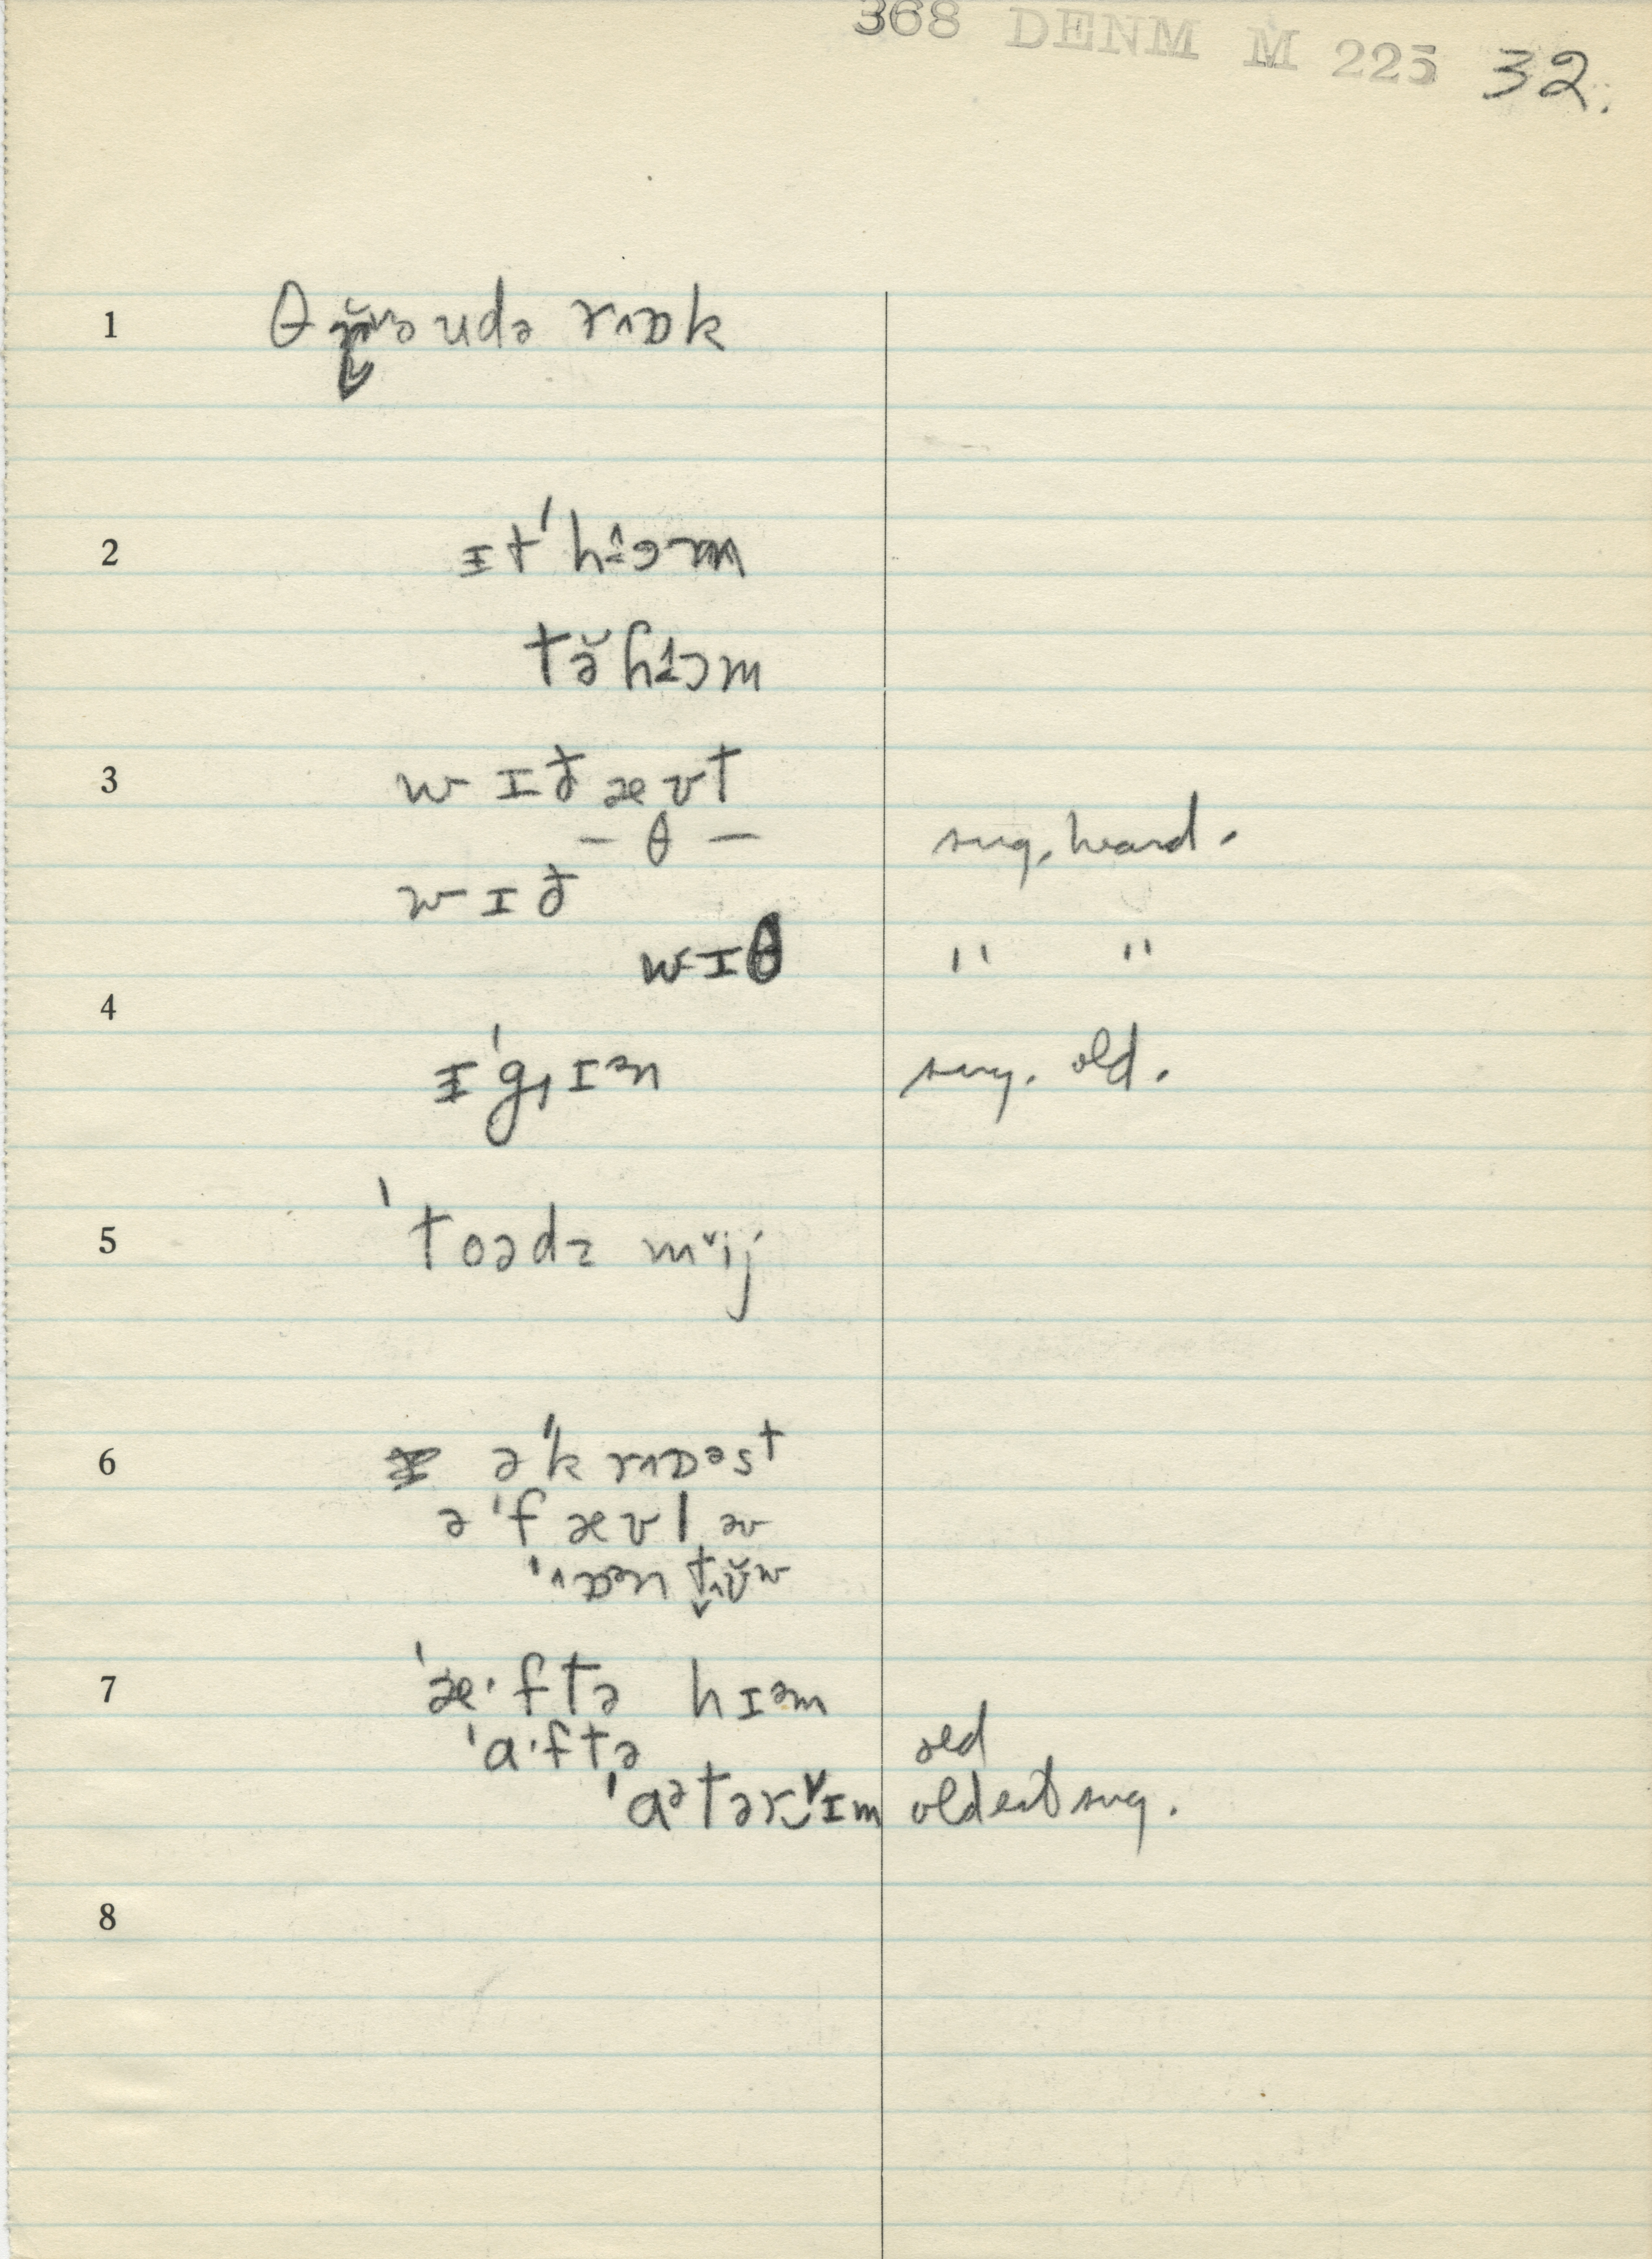 368 DENM M 225 32.
1 udə rɅɒk
2 ɪt ˈhɨ̂ɔm
tə̆ hɨ̂ɔm
3 w ɪ ð æ ʊ t
– θ – sug. heard.
w ɪ ð
w ɪ θ " "
4
ɪ ˈg ɪᵊn sug. old.
5 ˈtoədz mᵛij
6 ə ˈk r˄ɒᵊst
ə ˈf æ ʊ l əv
7 ˈæ·ftə hɪᵊm
ˈa·ftə old
ˈaᵊtər‿ᵛɪm oldest sug.
8